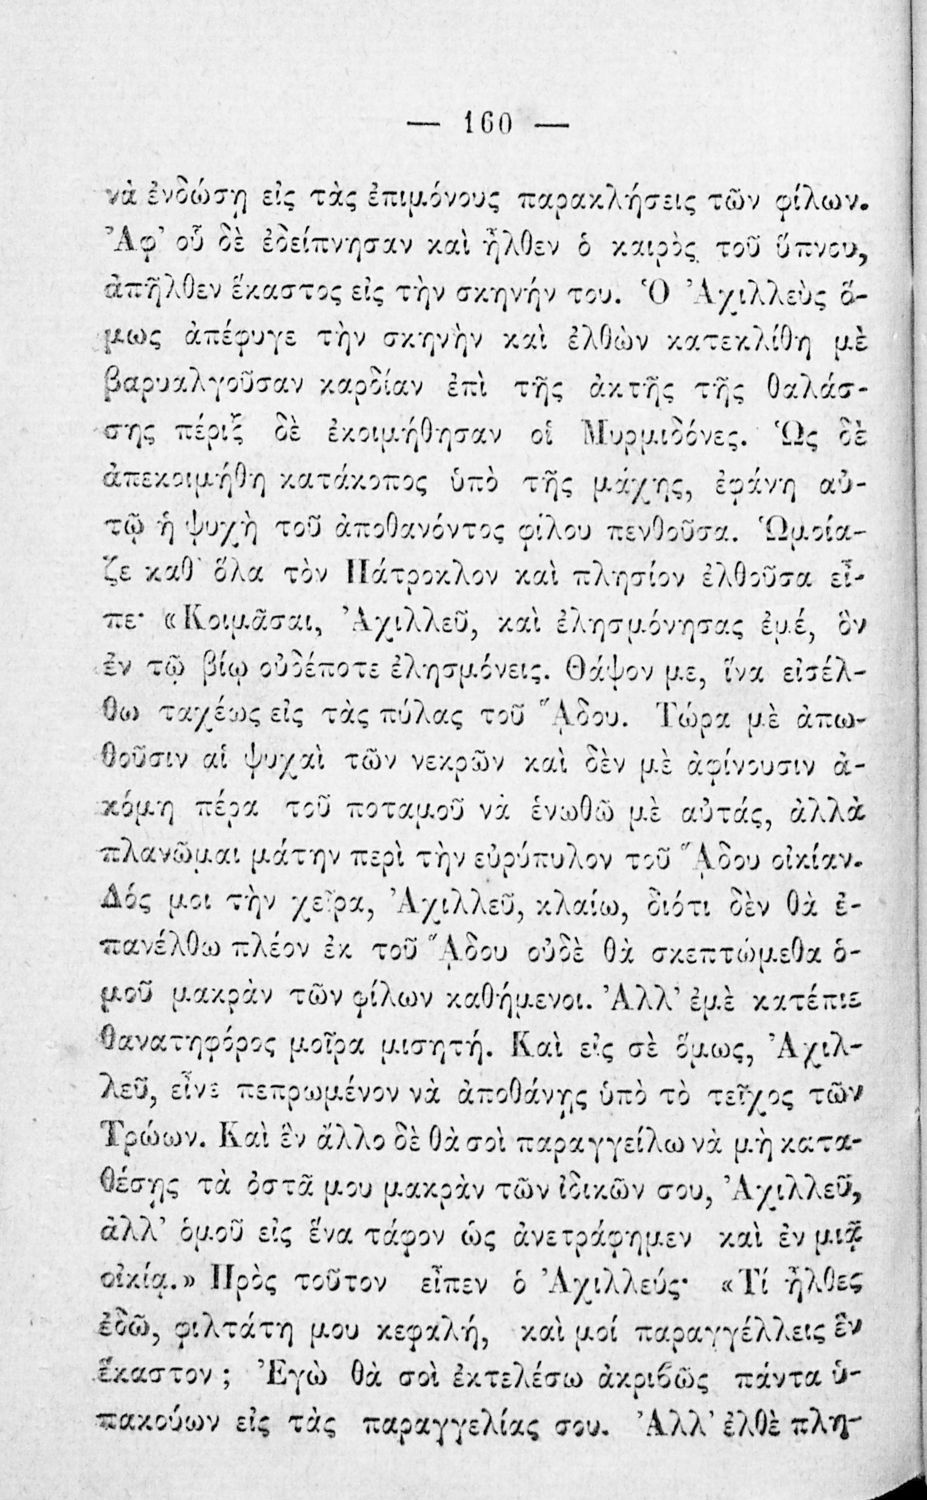 — 160 —
νὰ ἐνδώσῃ εἰς τὰς ἐπιμόνους παρακλήσεις τῶν φίλων.
Ἀφ’ οὗ δὲ ἐδείπνησαν καὶ ἦλθεν ὁ καιρὸς τοῦ ὕπνου,
ἀπῆλθεν ἕκαστος εἰς τὴν σκηνήν του. Ὁ Ἀχιλλεὺς ὅ-
μως ἀπέφυγε τὴν σκηνὴν καὶ ἐλθὼν κατεκλίθη μὲ
βαρυαλγοῦσαν καρδίαν ἐπὶ τῆς ἀκτῆς τῆς θαλάσ-
σης πέριξ δὲ ἐκοιμήθησαν οἱ Μυρμιδόνες. Ὡς δὲ
ἀπεκοιμήθη κατάκοπος ὑπὸ τῆς μάχης, ἐφάνη αὐ-
τῷ ἡ ψυχὴ τοῦ ἀποθανόντος φίλου πενθοῦσα. Ὡμοία-
ζε καθ’ ὅλα τὸν Πάτροκλον καὶ πλησίον ἐλθοῦσα εἶ-
πε· «Κοιμᾶσαι, Ἀχιλλεῦ, καὶ ἐλησμόνησας ἐμέ, ὃν
ἐν τῷ βίῳ οὐδέποτε ἐλησμόνεις. Θάψον με, ἵνα εἰσέλ-
θω ταχέως εἰς τὰς πύλας τοῦ ᾍδου. Τώρα μὲ ἀπω-
θοῦσιν αἱ ψυχαὶ τῶν νεκρῶν καὶ δὲν μὲ ἀφίνουσιν ἀ-
κόμη πέρα τοῦ ποταμοῦ νὰ ἑνωθῶ μὲ αὐτάς, ἀλλὰ
πλανῶμαι μάτην περὶ τὴν εὐρύπυλον τοῦ ᾍδου οἰκίαν.
Δός μοι τὴν χεῖρα, Ἀχιλλεῦ, κλαίω, διότι δὲν θὰ ἐ-
πανέλθω πλέον ἐκ τοῦ ᾍδου οὐδὲ θὰ σκεπτώμεθα ὁ-
μοῦ μακρὰν τῶν φίλων καθήμενοι. Ἀλλ’ ἐμὲ κατέπιε
θανατηφόρος μοῖρα μισητή. Καὶ εἰς σὲ ὅμως, Ἀχιλ-
λεῦ, εἶνε πεπρωμένον νὰ ἀποθάνῃς ὑπὸ τὸ τεῖχος τῶν
Τρώων. Καὶ ἓν ἄλλο δὲ θὰ σοὶ παραγγείλω νὰ μὴ κατα-
θέσῃς τὰ ὀστᾶ μου μακρὰν τῶν ἰδικῶν σου, Ἀχιλλεῦ,
ἀλλ’ ὁμοῦ εἰς ἕνα τάφον ὡς ἀνετράφημεν καὶ ἐν μιᾷ
οἰκίᾳ.» Πρὸς τοῦτον εἶπεν ὁ Ἀχιλλεύς· «Τί ἦλθες
ἐδῶ, φιλτάτη μου κεφαλή, καὶ μοί παραγγέλλεις ἓν
ἕκαστον ; Ἐγὼ θὰ σοὶ ἐκτελέσω ἀκριϐῶς πάντα ὑ-
πακούων εἰς τὰς παραγγελίας σου. Ἀλλ’ ἐλθὲ πλη-